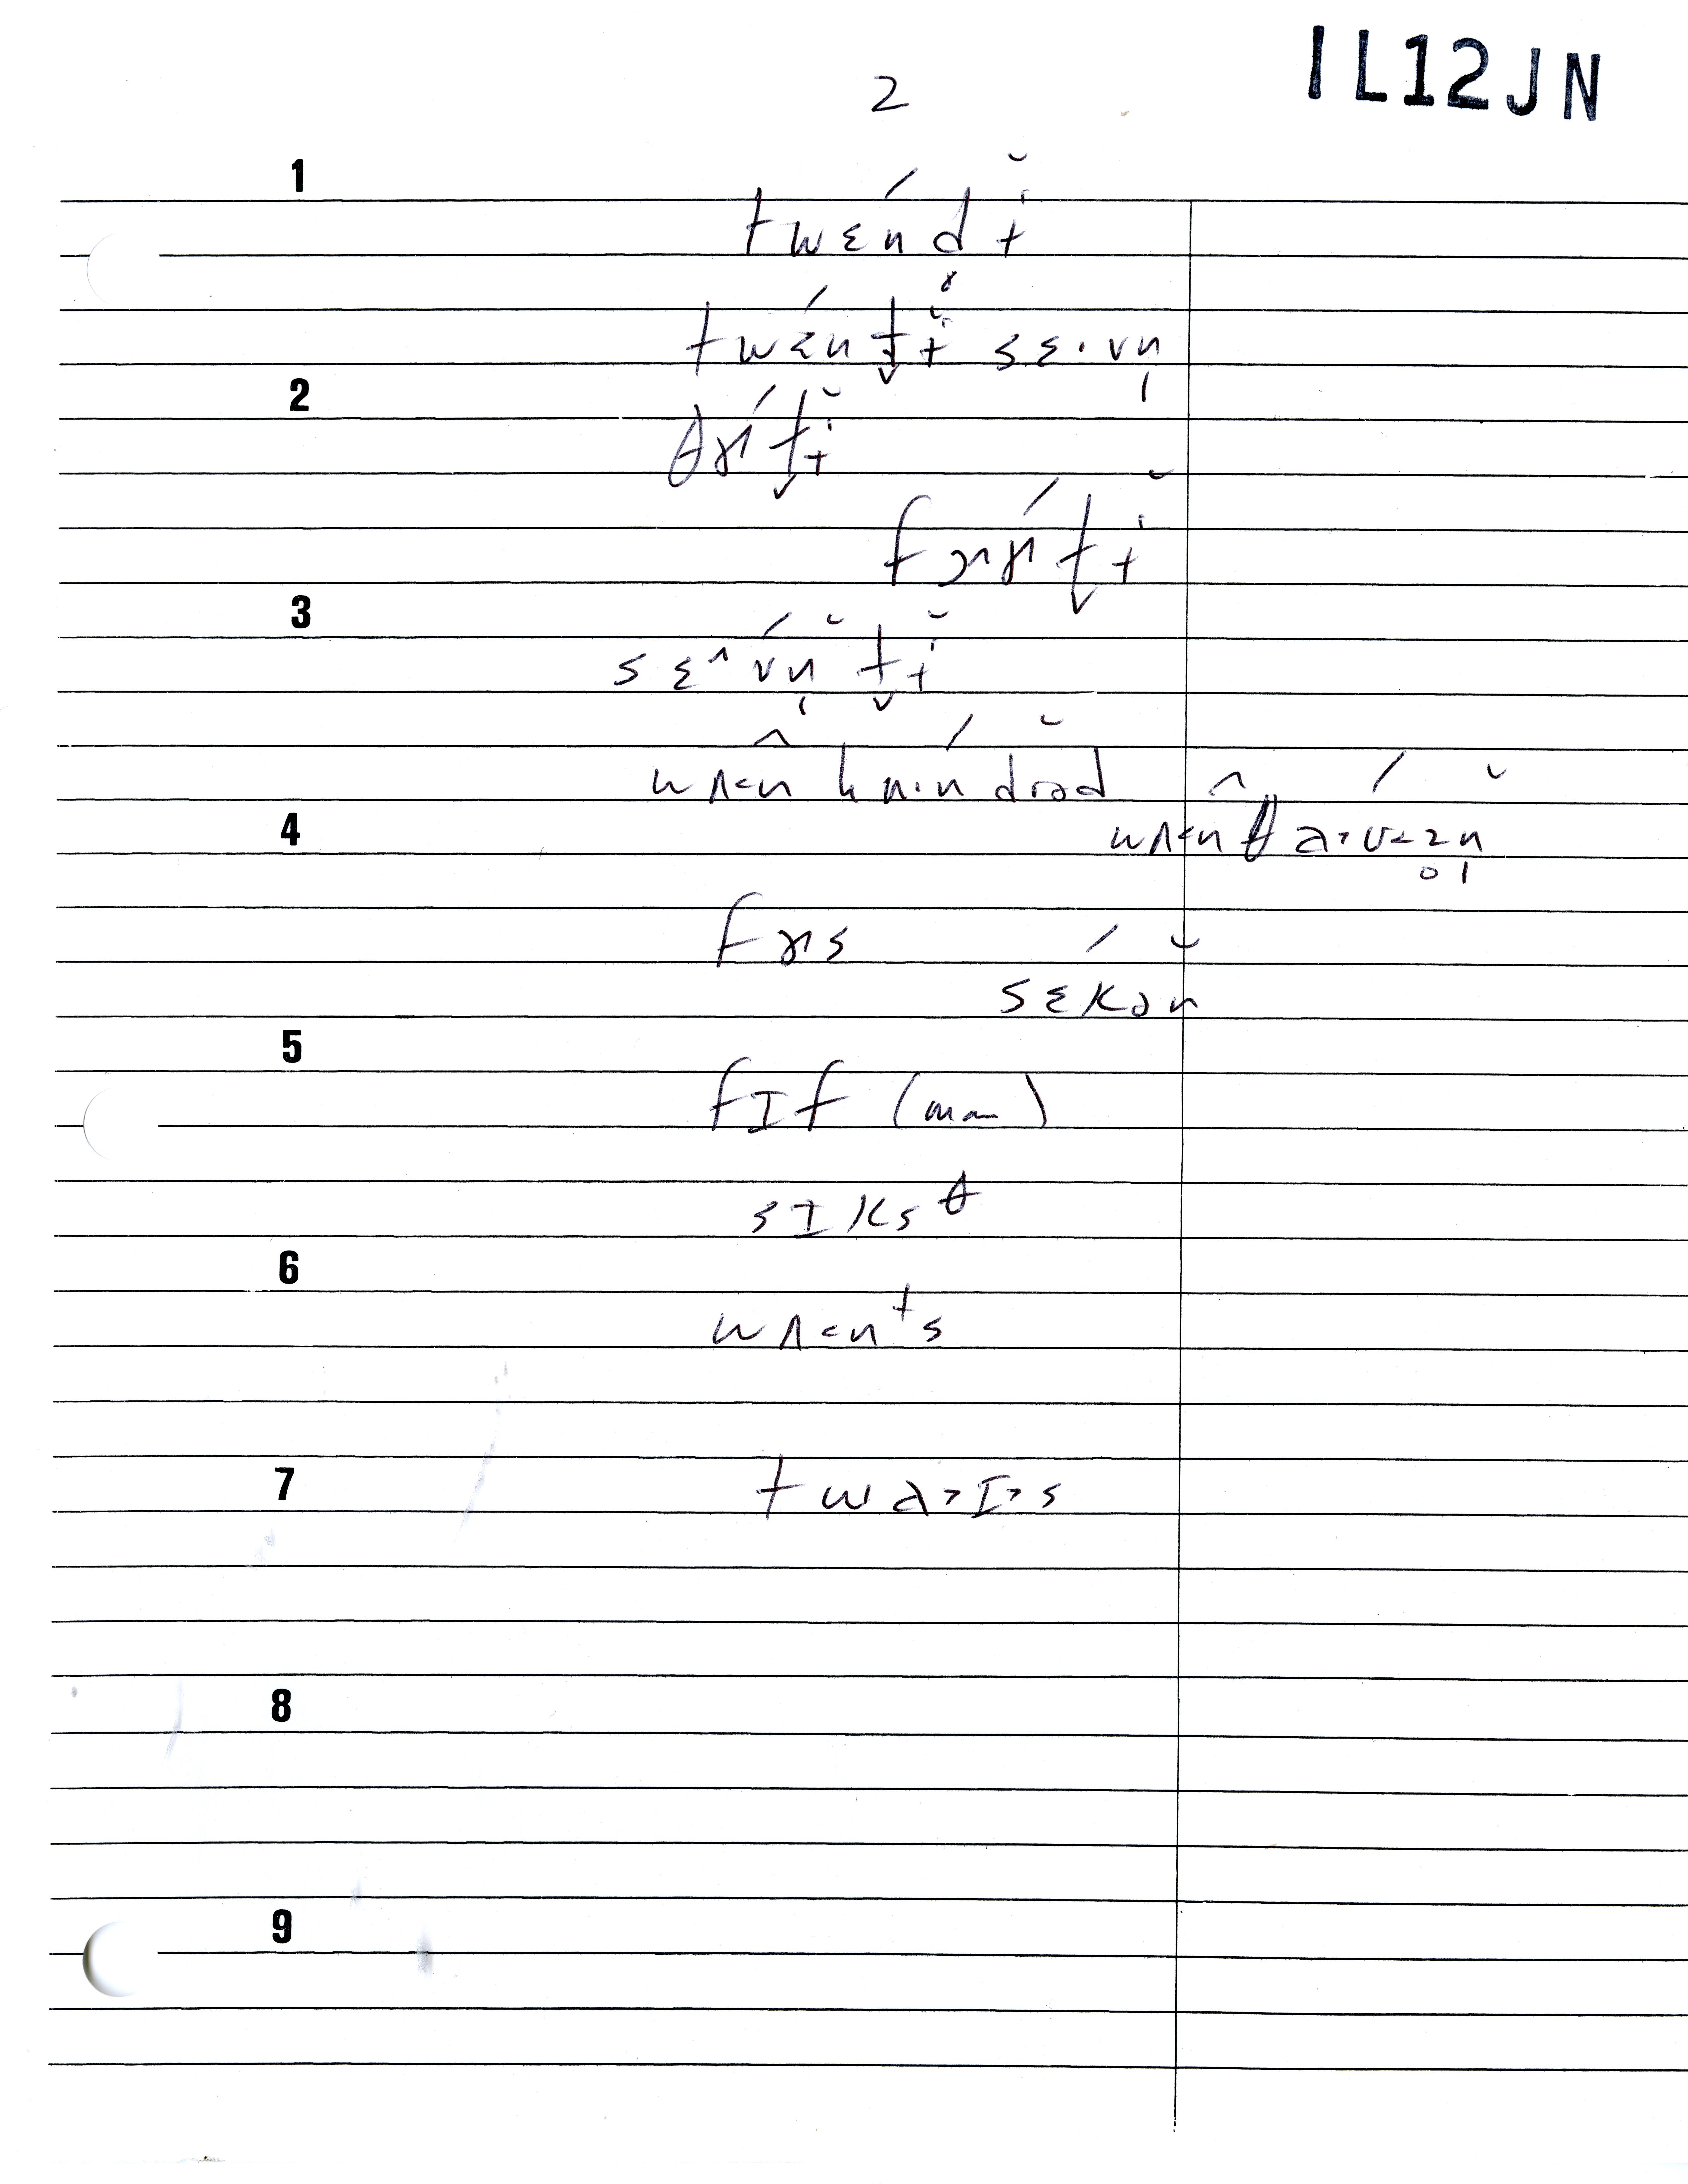 IL12JN
2
1
twɛ́ndɨ̆
twɛ́nt̬ɨ̆ sɛ·vn̩
2
θɚ́t̬ɨ̆
fɔɚ́t̬ɨ̆
3
sɛ^vn̩̆t̬ɨ̆
wʌ˂n hʌ́·ndrəd
4
fɚs
sɛ́kən
5
fɪf (man)
sɪksᶿ
6
wʌ˂nᵗs
7
twa˃ɪ˃s
8
9